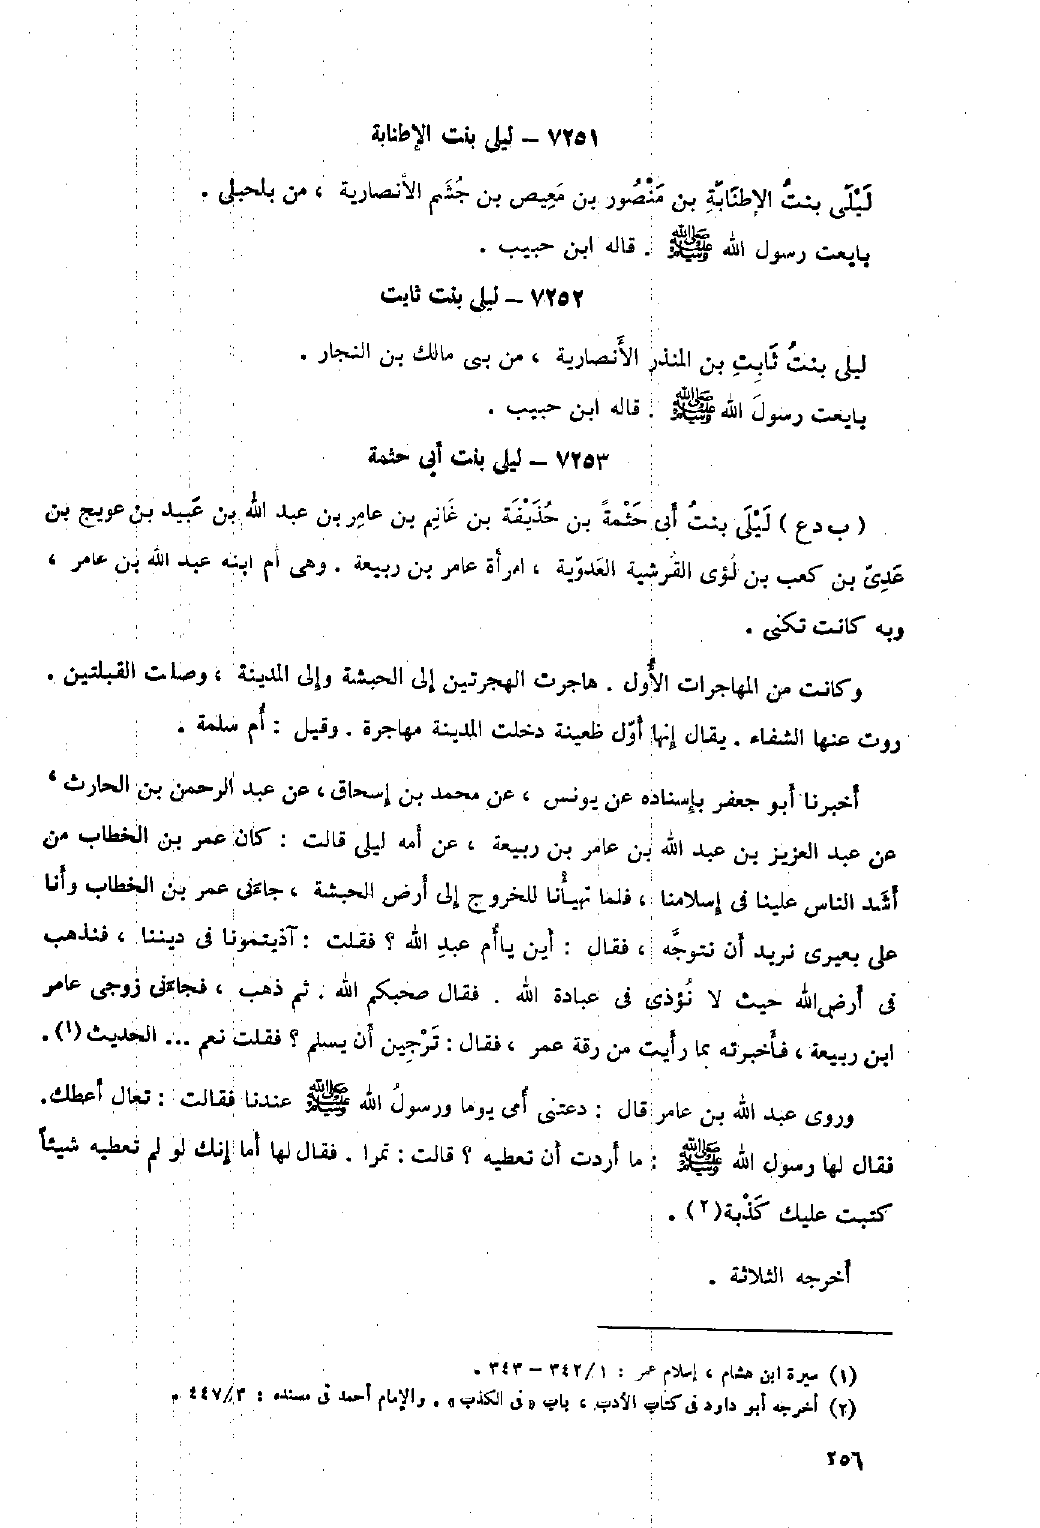 ٧٢٥١ – ليلى بنت الإطنابة
لَيْلَى بنتُ الإطنَابَةِ بن مَنْصُور بن مَعِيص بن جُشَم الأنصارية ، من بلحبلى .
بايعت رسول الله ﷺ . قاله ابن حبيب .
٧٢٥٢ – ليلى بنت ثابت
ليلى بنتُ ثَابِتِ بن المنذر الأَنصارية ، من بنى مالك بن النجار .
بايعت رسولَ الله ﷺ . قاله ابن حبيب .
٧٢٥٣ – ليلى بنت أبى حثمة
( ب د ع ) لَيْلَى بنتُ أَبى حَثْمةَ بن حُذَيْفَة بن غَانِم بن عامِر بن عبد الله بن عَبيد بن عويج بن
عَدِىّ بن كعب بن لُؤى القرشية العَدوّية ، امرأة عامر بن ربيعة . وهى أم ابنه عبد الله بن عامر ،
وبه كانت تكنى .
وكانت من المهاجرات الأُول . هاجرت الهجرتين إلى الحبشة وإلى المدينة ، وصلت القبلتين .
روت عنها الشفاء . يقال إنها أوّل ظعينة دخلت المدينة مهاجرة . وقيل : أُم سلمة .
أخبرنا أبو جعفر بإسناده عن يونس ، عن محمد بن إسحاق ، عن عبد الرحمن بن الحارث ،
عن عبد العزيز بن عبد الله بن عامر بن ربيعة ، عن أمه ليلى قالت : كان عمر بن الخطاب من
أشد الناس علينا فى إسلامنا ، فلما تهيأْنا للخروج إلى أرض الحبشة ، جاءَنى عمر بن الخطاب وأنا
على بعيرى نريد أن نتوجَّه ، فقال : أين يا أُم عبدِ الله ؟ فقلت : آذيتمونا فى ديننا ، فنذهب
فى أرض الله حيث لا نُؤذى فى عبادة الله . فقال صحبكم الله . ثم ذهب ، فجاءَنى زوجى عامر
ابن ربيعة ، فأخبرته بما رأيت من رقة عمر ، فقال : تَرْجِين أن يسلم ؟ فقلت نعم ... الحديث(١) .
وروى عبد الله بن عامر قال : دعتنى أمى يوما ورسولُ الله ﷺ عندنا فقالت : تعال أعطك .
فقال لها رسول الله ﷺ : ما أردت أن تعطيه ؟ قالت : تمرا . فقال لها أما إنك لو لم تعطيه شيئاً
كتبت عليك كَذْبة(٢) .
أخرجه الثلاثة .
(١) سيرة ابن هشام ، إسلام عمر : ١/ ٣٤٢ – ٣٤٣ .
(٢) أخرجه أبو داود فى كتاب الأدب ، باب « فى الكذب » . والإمام أحمد فى مسنده : ٣/ ٤٤٧ .
٢٥٦